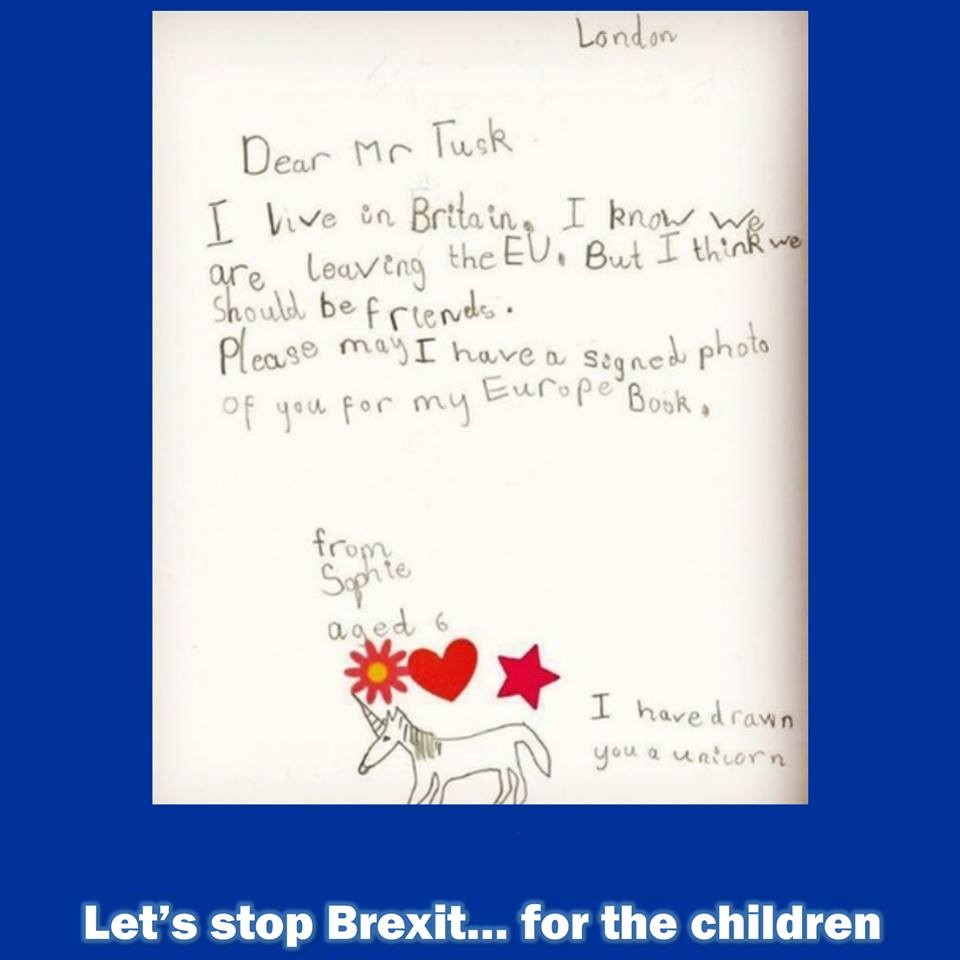 London
Dear Mr Tusk
I live in Britain. I know we
are leaving the EU. But I think we
should be friends.
Please may I have a signed photo
of you for my Europe Book.
from
Sophie
aged 6
I have drawn
you a unicorn
Let's stop Brexit... for the children